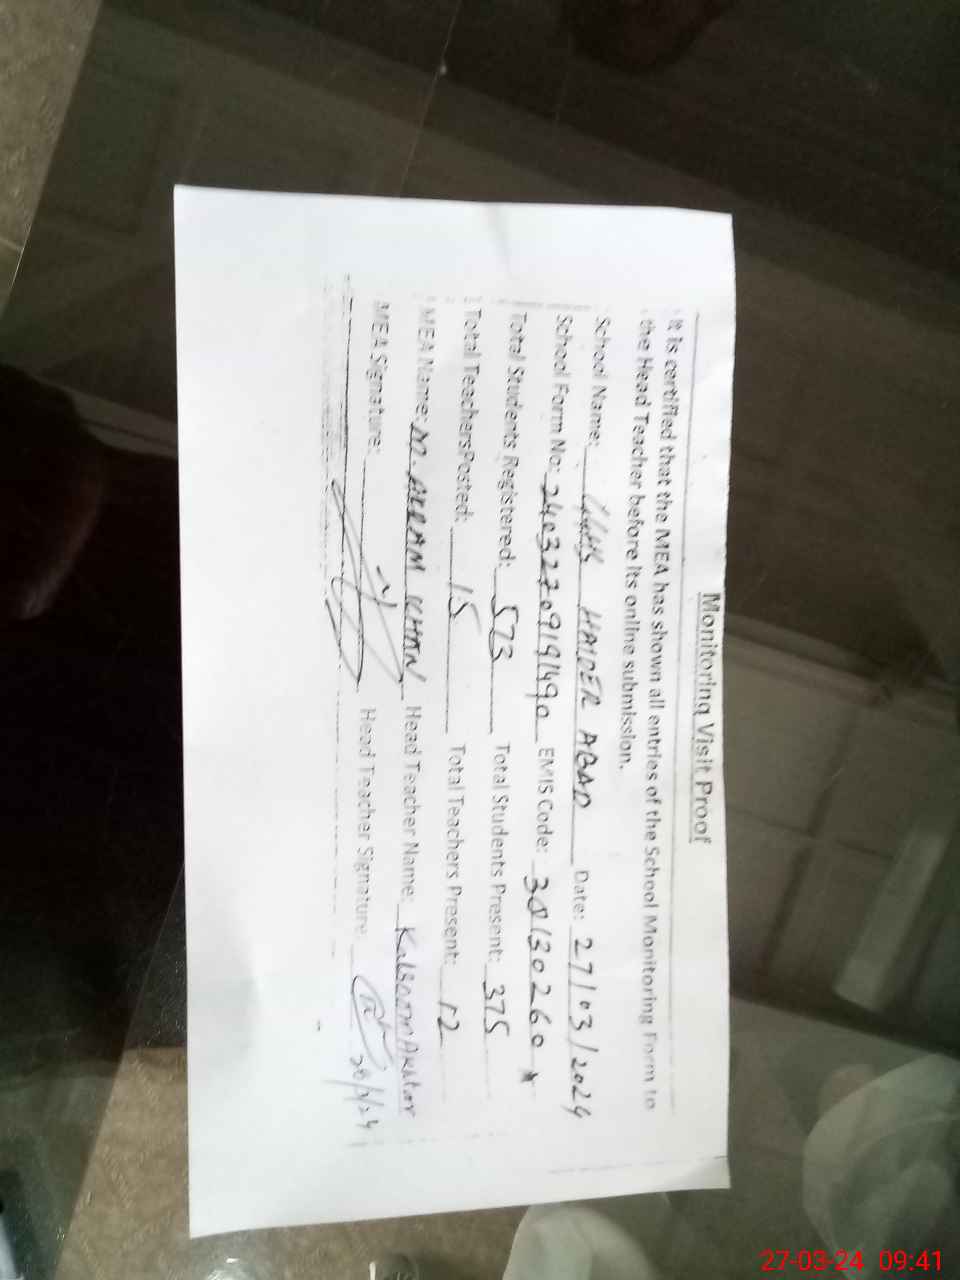 Monitoring Visit Proof
It is certified that the MEA has shown all entries of the School Monitoring From to
the Head Teacher before its online submission.
School Name: HAIDER ABAD Date: 27/03/2024
School Form No: EMIS Code: 38130260
Total Students Registered: 573 Total Students Present: 375
Total TeachersPosted: 15 Total Teachers Present: 12
MEA Name: M. AKRAM KHAN Head Teacher Name: Kalsoom Akhtar
MEA Signature: Head Teacher Signature:
27-03-24 09:41